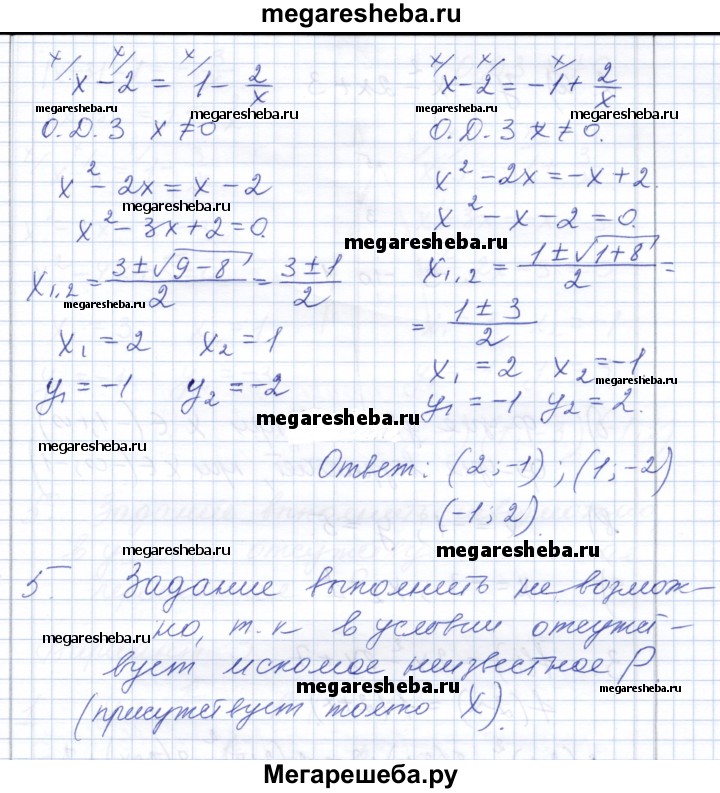 megaresheba.ru
x/ x/ x/
x - 2 = 1 - 2/x
megaresheba.ru megaresheba.ru
О.Д.З x ≠ 0
x² - 2x = x - 2
megaresheba.ru
x² - 3x + 2 = 0.
x₁,₂ = (3 ± √(9 - 8))/2 = (3 ± 1)/2
megaresheba.ru
x₁ = 2 x₂ = 1
y₁ = -1 y₂ = -2
megaresheba.ru
x/ x/ x/
x - 2 = -1 + 2/x
megaresheba.ru megaresheba.ru
О.Д.З x ≠ 0.
x² - 2x = -x + 2.
x² - x - 2 = 0.
megaresheba.ru
x₁,₂ = (1 ± √(1 + 8))/2 =
= (1 ± 3)/2
x₁ = 2 x₂ = -1
megaresheba.ru
y₁ = -1 y₂ = 2.
megaresheba.ru
Ответ: (2; -1); (1; -2)
(-1; 2)
megaresheba.ru megaresheba.ru
5 Задание выполнить невозмож-
но, т.к в условии отсутст-
megaresheba.ru
вует искомое неизвестное P
megaresheba.ru megaresheba.ru
(присутствует только X).
Мегарешеба.ру